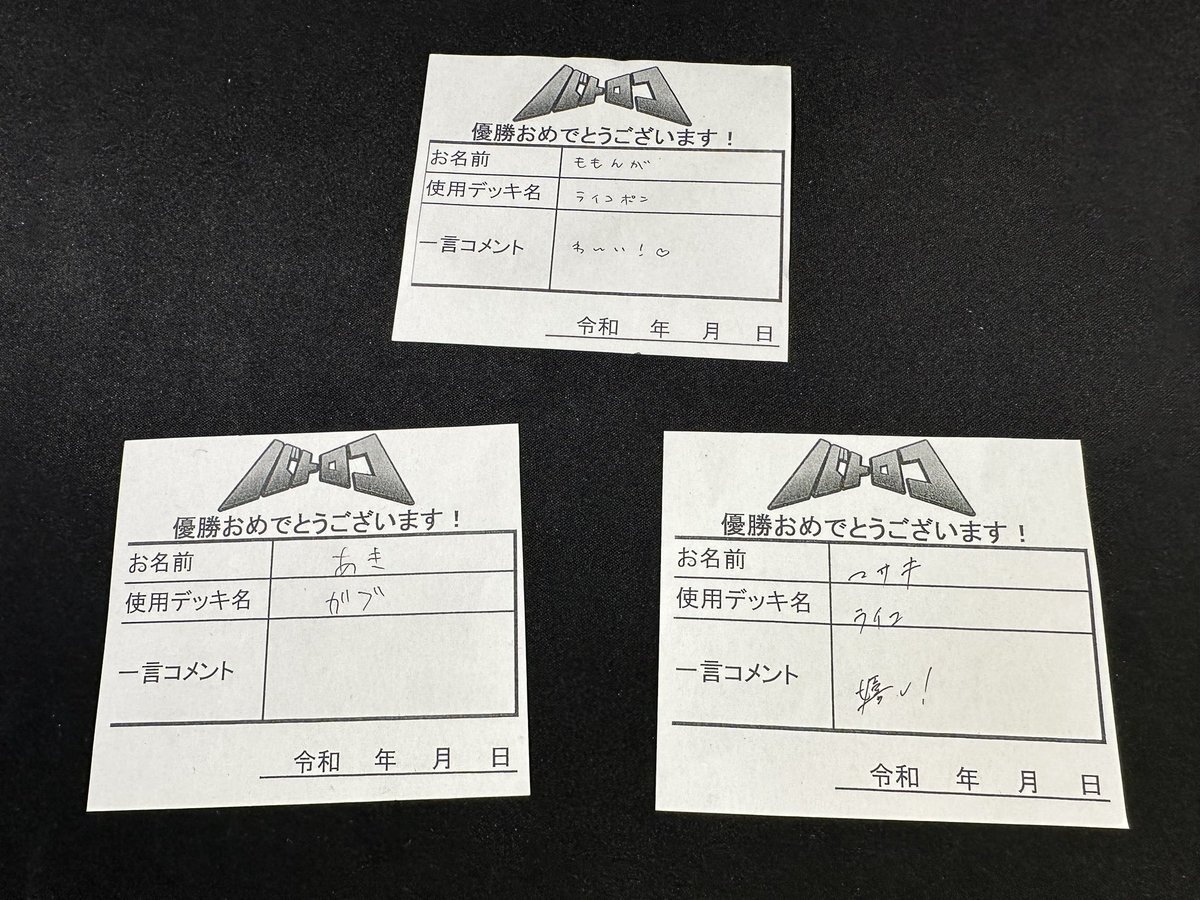 バトロコ
優勝おめでとうございます！
お名前 ももんが
使用デッキ名 ライコポン
一言コメント わーい！♡
令和 年 月 日
バトロコ
優勝おめでとうございます！
お名前 あき
使用デッキ名 ガブ
一言コメント
令和 年 月 日
バトロコ
優勝おめでとうございます！
お名前 マサキ
使用デッキ名 ライコ
一言コメント 嬉しい！
令和 年 月 日